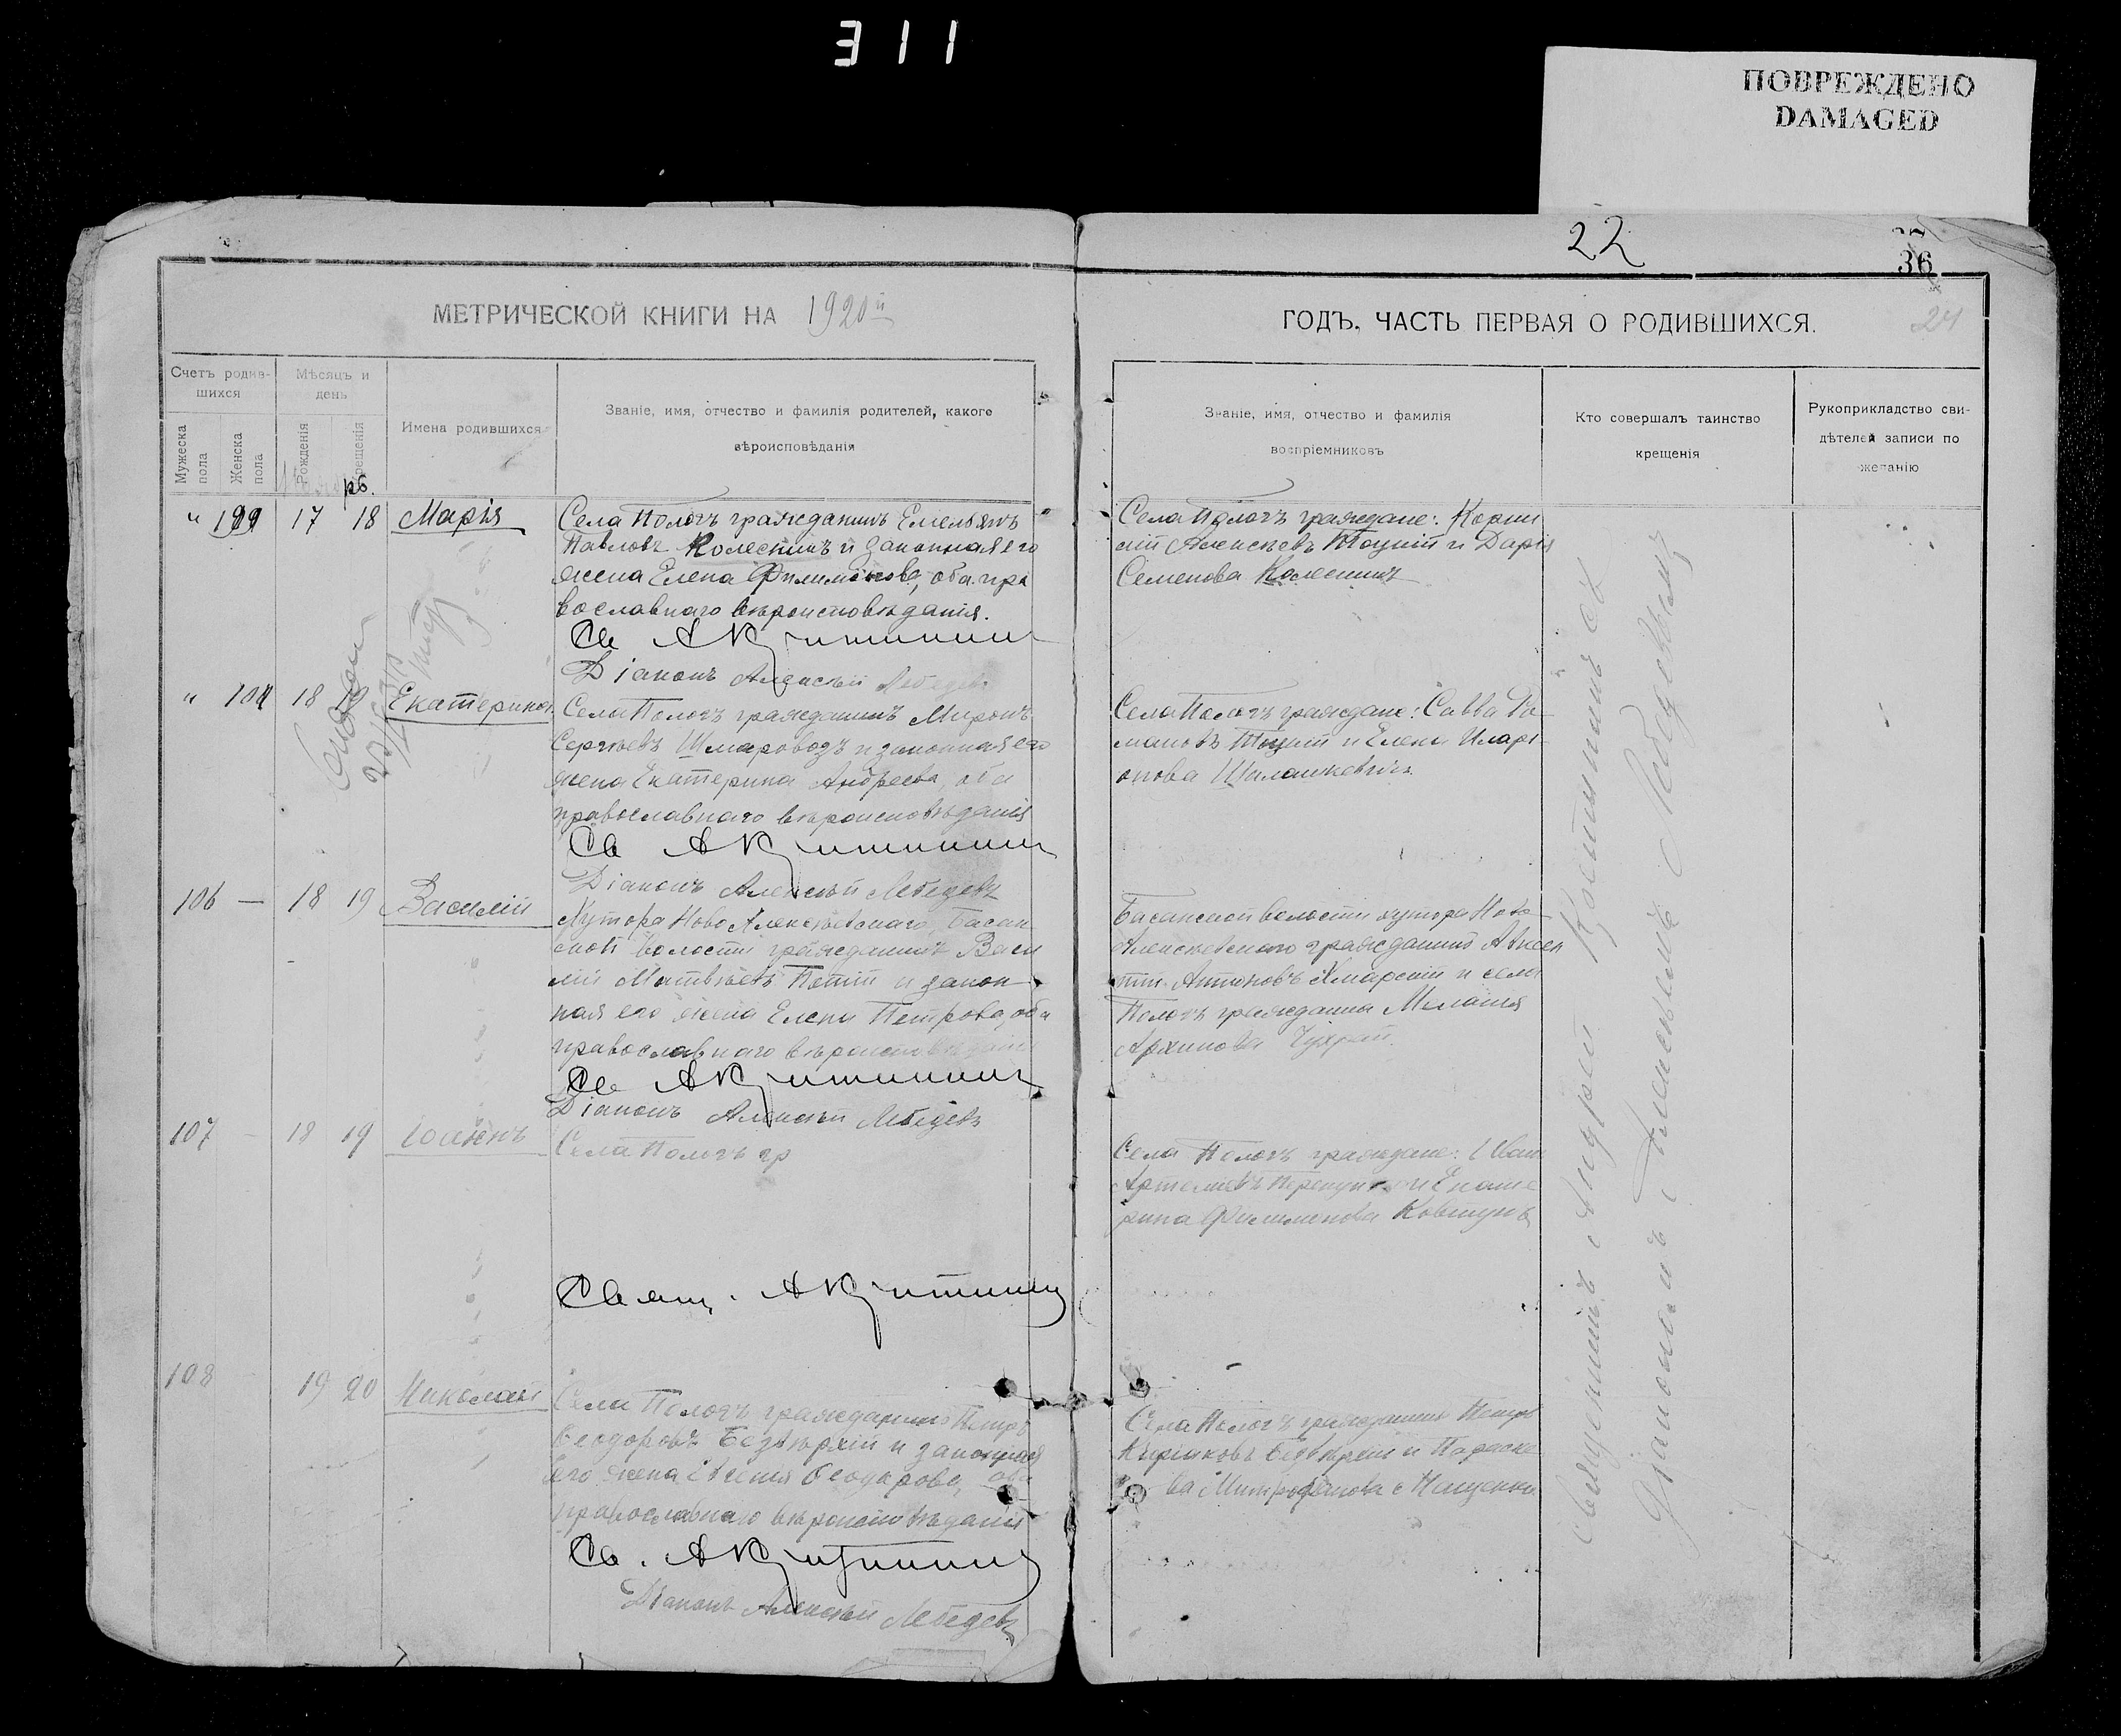 311
ПОВРЕЖДЕНО
DAMAGED
22
36
24
МЕТРИЧЕСКОЙ КНИГИ НА 1920й
ГОДЪ, ЧАСТЬ ПЕРВАЯ О РОДИВШИХСЯ.
Счетъ родив-
шихся
Мужеска пола
Женска пола
Мѣсяцъ и
день
Рожденія
Крещенія
Имена родившихся
Званіе, имя, отчество и фамилія родителей, какого
вѣроисповѣданія
Званіе, имя, отчество и фамилія
воспріемниковъ
Кто совершалъ таинство
крещенія
Рукоприкладство сви-
дѣтелей записи по
желанію
" 17 18 Марія
Села Пологъ гражданинъ Емельянъ
Павловъ Колесникъ и законная его
жена Елена Филимонова, оба пра
вославнаго вѣроисповѣданія.
Св А
Діаконъ Алексѣй Лебедевъ
Села Пологъ граждане: Корни
лій Алексѣевъ Тоцкій и Дарія
Семенова Колесникъ
" 104 18 19 Екатерина
Села Пологъ гражданинъ Миронъ
Сергѣевъ Шмаровозъ и законная его
жена Екатерина Андреева, оба
православнаго вѣроисповѣданія
Св А
Діаконъ Алексѣй Лебедевъ
Села Пологъ граждане: Савва Ро
мановъ Тоцкій и Елена Иларі
онова
106 — 18 19 Василій
Хутора Ново Алексѣевскаго, Басан
ской волости гражданинъ Васи
лій Матвѣевъ и закон
ная его жена Елена Петрова, оба
православнаго вѣроисповѣданія
Св А
Діаконъ Алексѣй Лебедевъ
Басанской волости хутора Ново
Алексѣевскаго гражданинъ Авксен
тій Антоновъ Хмарскій и села
Пологъ гражданка Меланія
Архипова Чухрай.
107 - 18 19 Іоаннъ
Села Пологъ гр
Свящ. А
Села Пологъ граждане: Иванъ
Артемьевъ и Екате
рина Филимонова Ковтунъ
108 19 20 Николай
Села Пологъ гражданинъ Петръ
Ѳеодоровъ Безвѣрхій и законная
его жена Евгенія Ѳеодорова, оба
православнаго вѣроисповѣданія
Св. А
Діаконъ Алексѣй Лебедевъ
Села Пологъ гражданинъ Петръ
Кириковъ Безвѣрхій и Параске
ва Митрофанова
Священникъ Андрей съ
Діакономъ Алексѣемъ Лебедевымъ